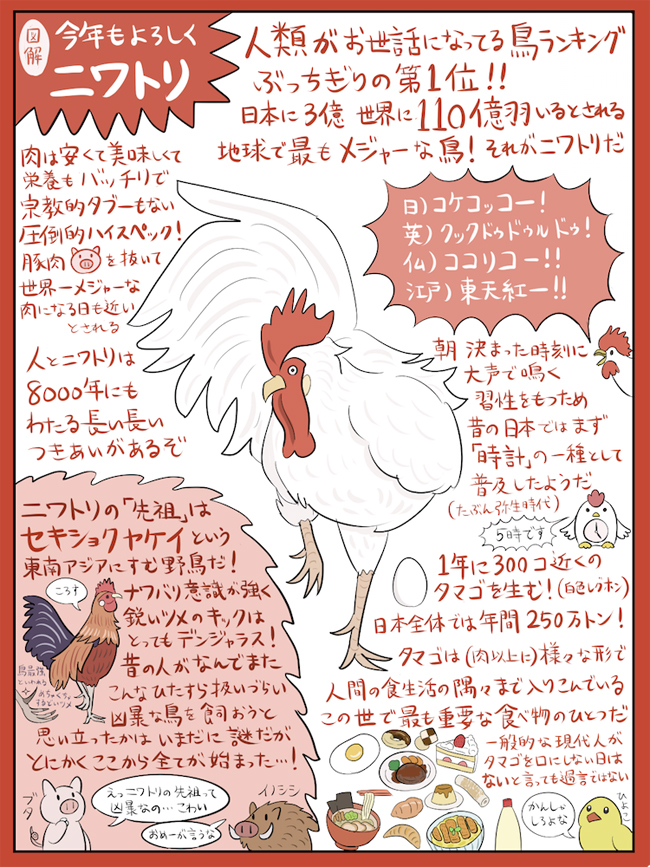 図解
今年もよろしく
ニワトリ
人類がお世話になってる鳥ランキング
ぶっちぎりの第1位!!
日本に3億 世界に110億羽いるとされる
地球で最もメジャーな鳥! それがニワトリだ
肉は安くて美味しくて
栄養もバッチリで
宗教的タブーもない
圧倒的ハイスペック!
豚肉を抜いて
世界一メジャーな
肉になる日も近い
とされる
日)コケコッコー!
英)クックドゥドゥルドゥ!
仏)ココリコー!!
江戸)東天紅ー!!
人とニワトリは
8000年にも
わたる長い長い
つきあいがあるぞ
朝 決まった時刻に
大声で鳴く
習性をもつため
昔の日本ではまず
「時計」の一種として
普及したようだ
(たぶん弥生時代)
5時です
1年に300コ近くの
タマゴを生む!(白色レグホン)
日本全体では年間250万トン!
タマゴは(肉以上に)様々な形で
人間の食生活の隅々まで入りこんでいる
この世で最も重要な食べ物のひとつだ
一般的な現代人が
タマゴを口にしない日は
ないと言っても過言ではない
ニワトリの「先祖」は
セキショクヤケイという
東南アジアにすむ野鳥だ!
ころす
ナワバリ意識が強く
鋭いツメのキックは
とってもデンジャラス!
昔の人がなんでまた
こんなひたすら扱いづらい
凶暴な鳥を飼おうと
思い立ったかはいまだに謎だが
とにかくここから全てが始まった…!
ブタ
えっニワトリの先祖って
凶暴なの…こわい
おめーが言うな
イノシシ
かんしゃ
しろよな
ひよこ